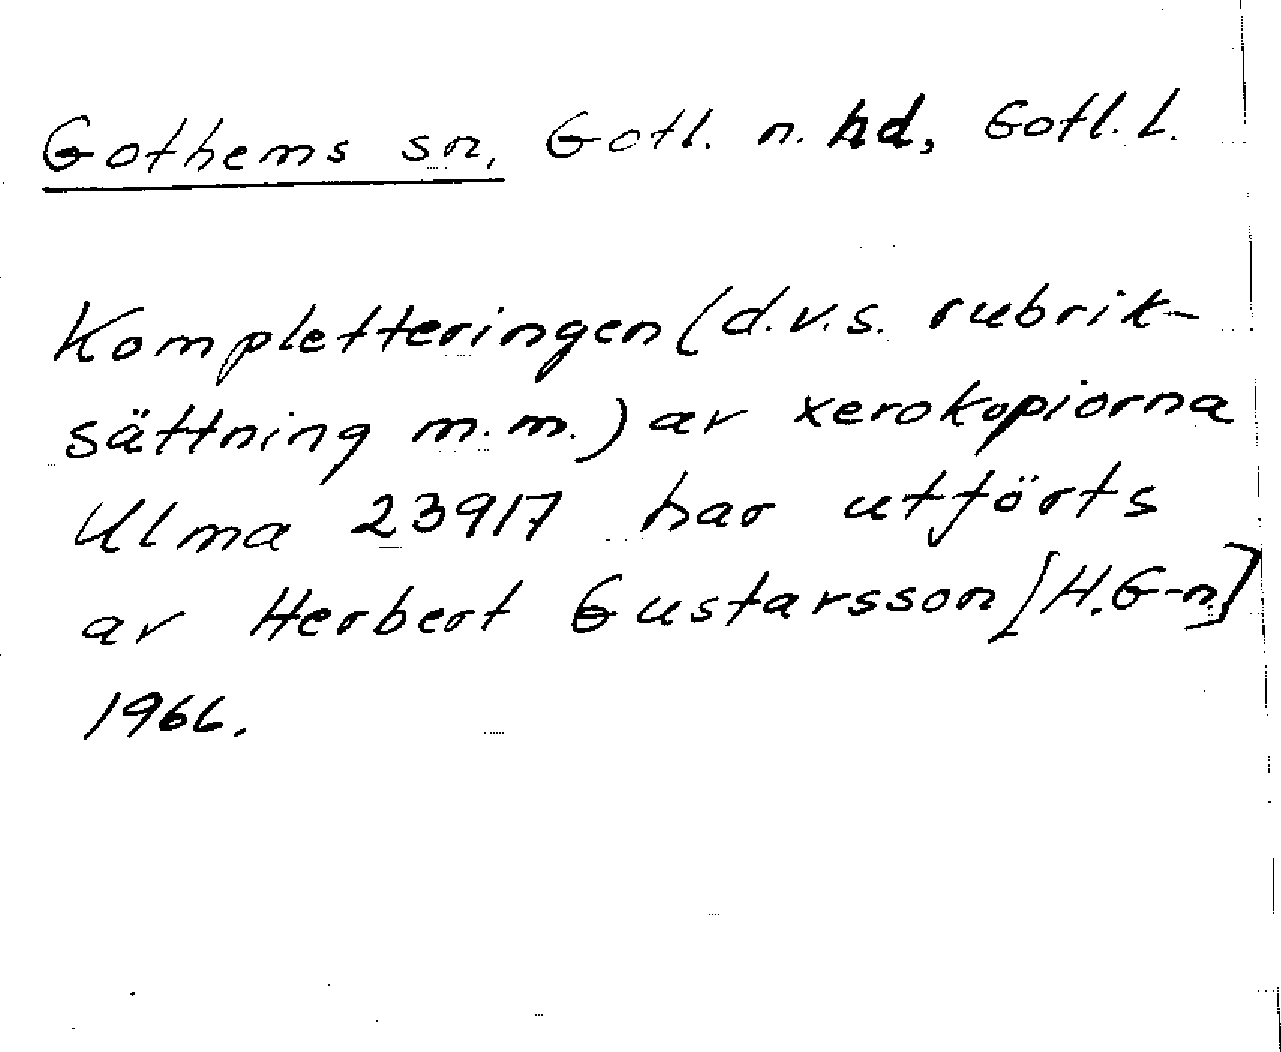 Gothems sn, Gotl. n. hd, Gotl. L.
Kompletteringen (d.v.s. rubrik-
sättning m.m.) av xerokopiorna
Ulma 23917 har utförts
av Herbert Gustavsson [H.G-n]
1966.